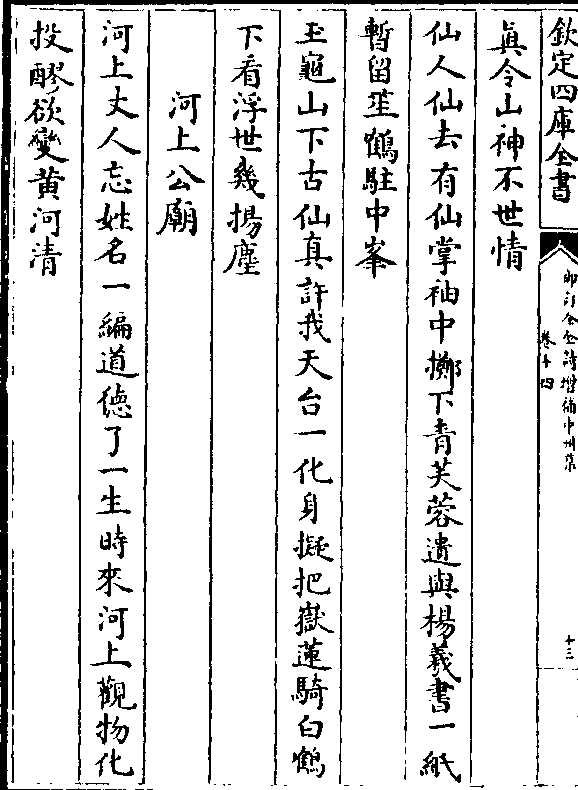 欽定四庫全書
御訂全金詩增補中州集
卷十四
十三
眞令山神不世情
仙人仙去有仙掌袖中擲下青芙蓉遺與楊羲書一紙
暫留笙鶴駐中峯
玉龜山下古仙真許我天台一化身擬把嶽蓮騎白鶴
下看浮世幾揚塵
河上公廟
河上丈人忘姓名一編道德了一生時來河上觀物化
投醪欲變黄河清